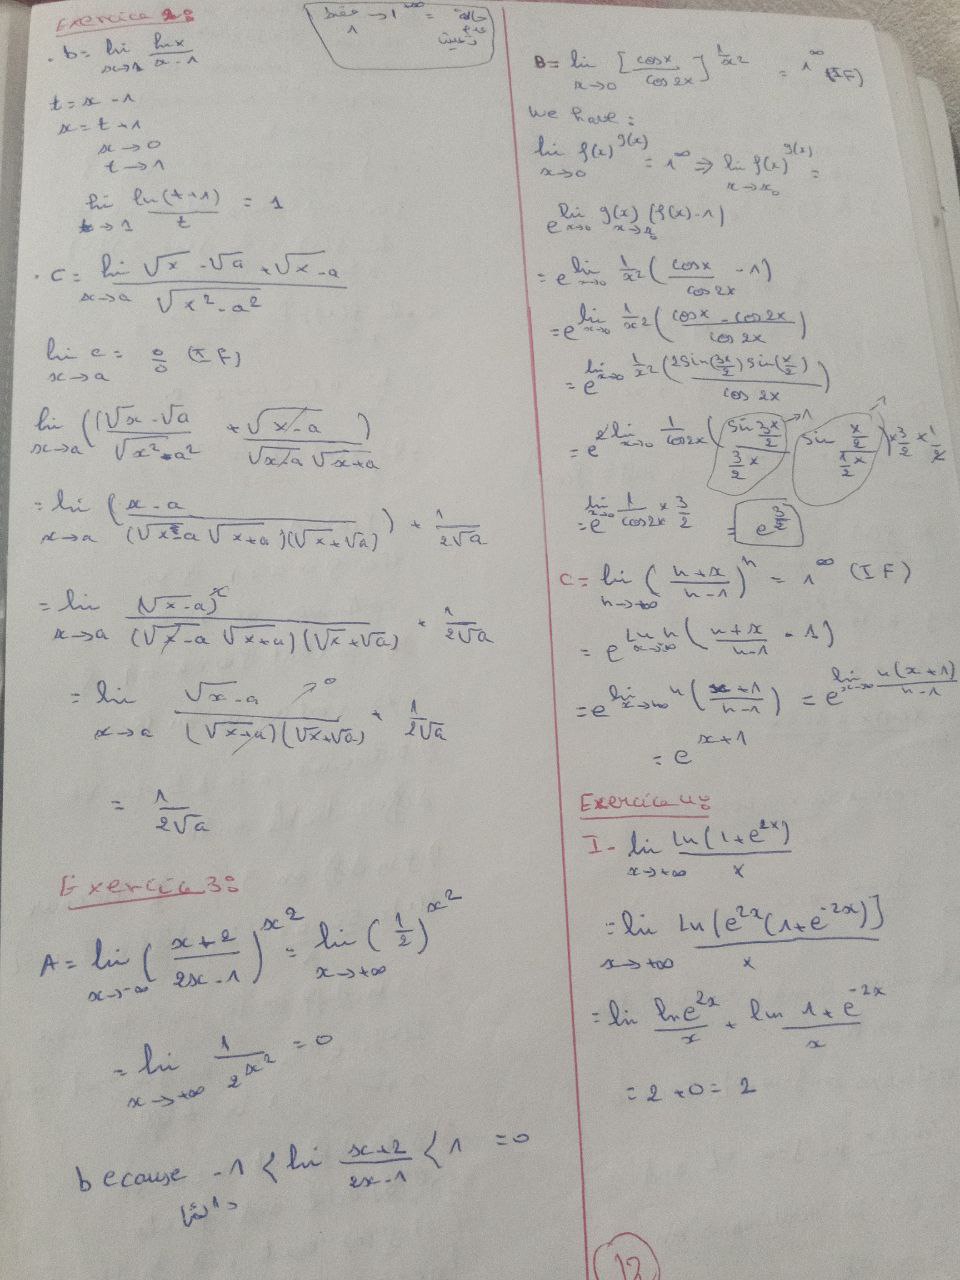 Exercice 2:
. b = lim_{x→1} lnx/(x-1)
t = x - 1
x = t + 1
x → 0
t → 1
lim_{t→1} ln(t+1)/t = 1
. C = lim_{x→a} (√x - √a + √x-a)/√(x²-a²)
lim_{x→a} c = 0/0 (I F)
lim_{x→a} ((√x - √a)/√(x²-a²) + √(x-a)/(√(x-a) √(x+a)))
= lim_{x→a} ((x-a)/((√(x-a) √(x+a))(√x+√a))) + 1/(2√a)
= lim_{x→a} (√(x-a))²/((√(x-a) √(x+a))(√x+√a)) + 1/(2√a)
= lim_{x→a} √(x-a)/((√(x+a))(√x+√a)) → 0 + 1/(2√a)
= 1/(2√a)
Exercice 3:
A = lim_{x→-∞} ((x+2)/(2x-1))^{x²} = lim_{x→+∞} (1/2)^{x²}
= lim_{x→+∞} 1/2^{x²} = 0
because -1 < lim (x+2)/(2x-1) < 1 = 0
B = lim_{x→0} [cosx/cos2x]^{1/x²} = 1^∞ (I F)
we have:
lim_{x→0} f(x)^{g(x)} = 1^∞ ⇒ lim_{x→x₀} f(x)^{g(x)} =
e^{lim_{x→0} g(x) (f(x)-1)} x→x₀
= e^{lim_{x→0} 1/x² (cosx/cos2x - 1)}
= e^{lim_{x→0} 1/x² ((cosx - cos2x)/cos2x)}
= e^{lim_{x→0} 1/x² ((2sin(3x/2) sin(x/2))/cos2x)}
= e^{2lim_{x→0} 1/cos2x (sin(3x/2)/(3/2 x) → 1 sin(x/2)/(1/2 x) → 1) × 3/2 × 1/2}
= e^{lim_{x→0} 1/cos2x × 3/2} = e^{3/2}
C = lim_{n→+∞} ((n+x)/(n-1))^n = 1^∞ (I F)
= e^{lim_{x→+∞} n ((n+x)/(n-1) - 1)}
= e^{lim_{x→+∞} n ((x+1)/(n-1))} = e^{lim_{x→+∞} n(x+1)/(n-1)}
= e^{x+1}
Exercice 4:
I - lim_{x→+∞} ln(1+e^{2x})/x
= lim_{x→+∞} ln[e^{2x}(1+e^{-2x})]/x
= lim lne^{2x}/x + lim 1+e^{-2x}/x
= 2 + 0 = 2
12